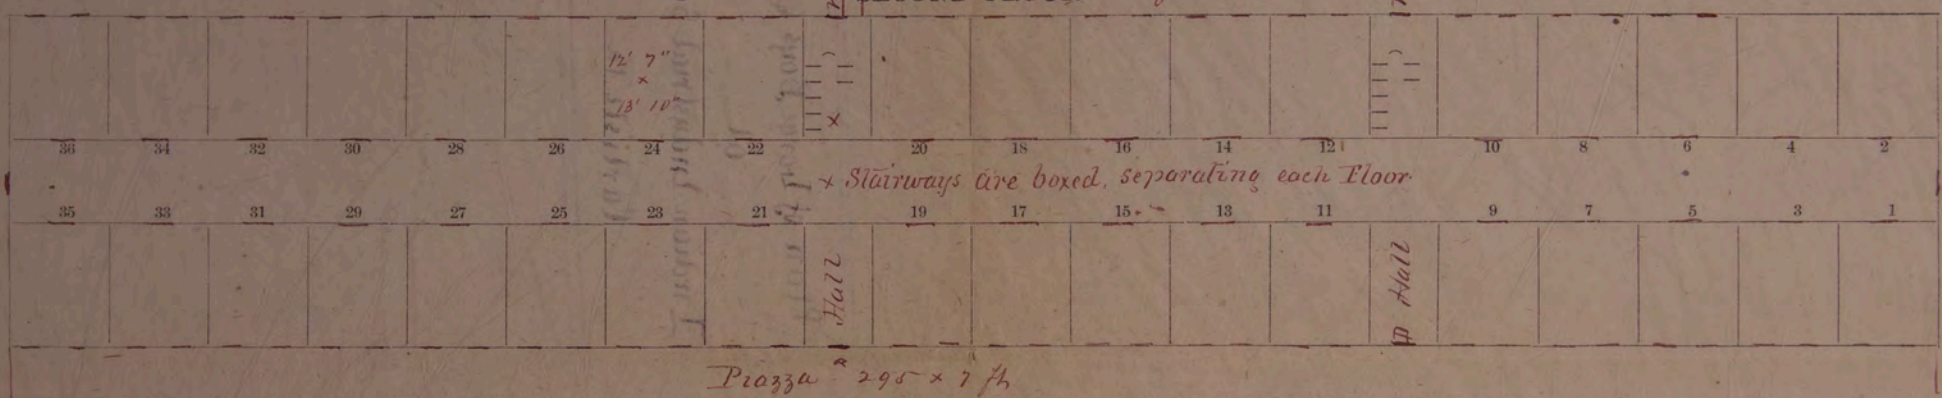 12' 7"
x
13' 10"
36 34 32 30 28 26 24 22 20 18 16 14 12 10 8 6 4 2
x Stairways are boxed, separating each Floor.
35 33 31 29 27 25 23 21 19 17 15 13 11 9 7 5 3 1
Hall
Hall
Piazza 295 x 7 ft